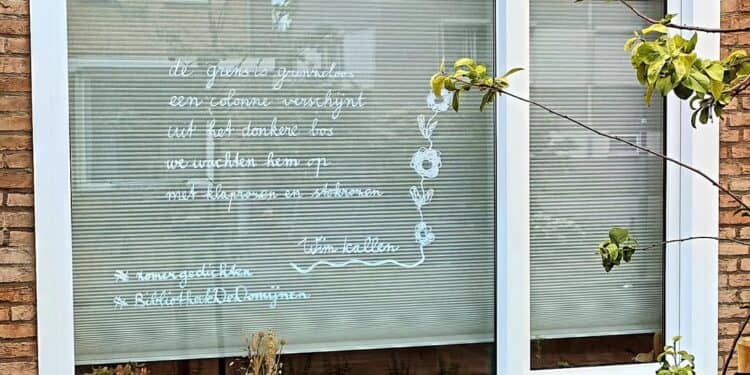 de grens is grenneloos
een colonne verschijnt
uit het donkere bos
we wachten hem op
met klaprozen en stokrozen
Wim kallen
* zomergedichten
* BibliotheekDeDomijnen